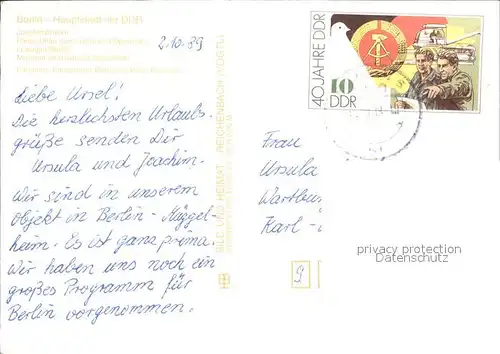 Berlin - Hauptstadt der DDR
2.10.89
Liebe Ursel!
Die herzlichsten Urlaubs-
grüße senden Dir
Ursula und Joachim.
Wir sind in unserem
Objekt in Berlin-Müggel-
heim. Es ist ganz prima.
Wir haben uns noch ein
großes Programm für
Berlin vorgenommen.
BILD UND HEIMAT REICHENBACH (VOGTL)
40 JAHRE DDR
10
DDR
Frau
Ursula
Wartbur
Karl -
privacy protection
Datenschutz
9